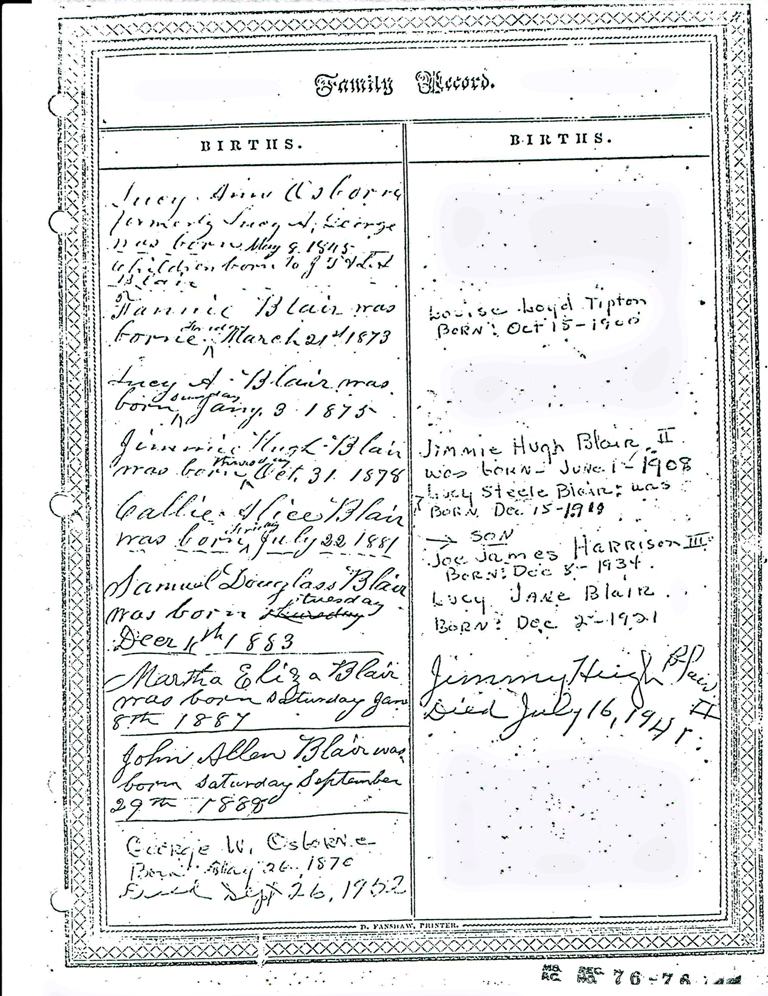 Family Record.
BIRTHS.
Lucy Ann Osborne
formerly Lucy A. George
was born May 8 1845
children born to J
Blair
Fannie Blair was
borne March 21st 1873
Lucy A. Blair was
born Sunday Jany. 3 1875
Jimmie Hugh Blair
was born Thursday Oct. 31 1878
Callie Alice Blair
was born Friday July 22 1881
Samuel Douglass Blair
was born Thursday Tuesday
Decr 1883
Martha Eliza Blair
was born Saturday Jan
8th 1887
John Allen Blair was
born Saturday September
29th 1888
George W. Osborne
Born May 26, 1870
Died Sept 26, 1952
BIRTHS.
Louise Loyd Tipton
BORN: Oct 15-1900
Jimmie Hugh Blair II
was BORN- JUNE 1-1908
Lucy Steele Blair: was
BORN Dec 15-1910
→ SON
Joe James HARRISON III
BORN: Dec 8-1934.
Lucy JANE Blair.
BORN: Dec 2-1921
Jimmy Hugh Blair II
Died July 16, 1941.
D. FANSHAW, PRINTER.
MS. REC.
RC. NO. 76-76